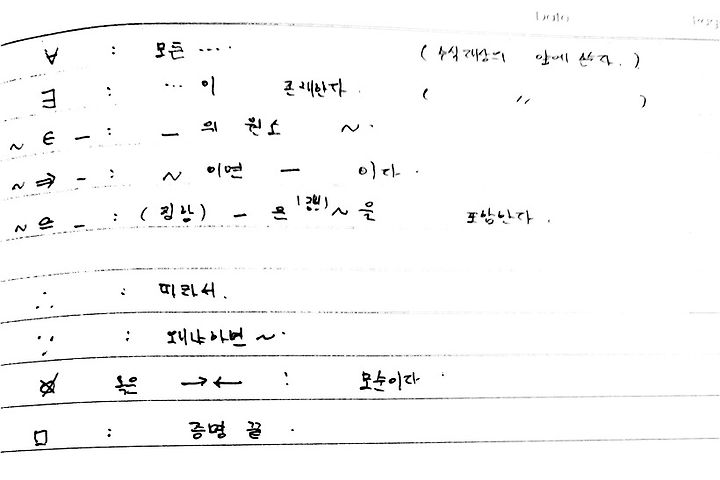 Date
∀ : 모든 .... ( 수식대상의 앞에 쓴다. )
∃ : ... 이 존재한다. ( 〃 )
~ ∈ - : - 의 원소 ~.
~ ⇒ - : ~ 이면 - 이다.
~ ⊆ - : (집합) - 은 (집합) ~ 을 포함한다.
∴ : 따라서.
∵ : 왜냐하면 ~.
※ 혹은 →← : 모순이다.
□ : 증명 끝.